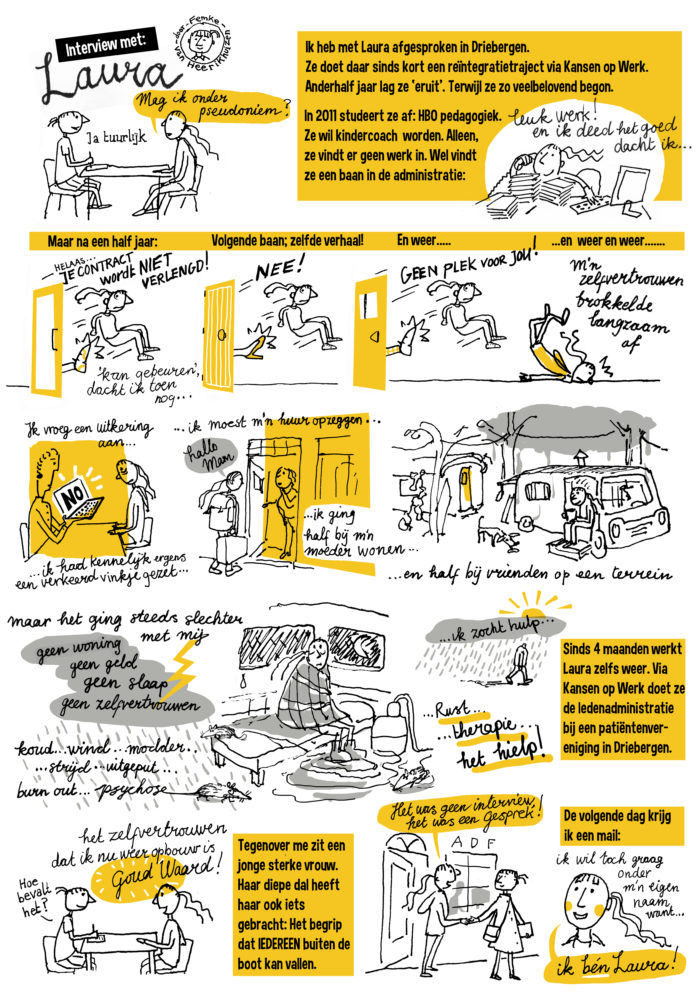 Interview met:
Laura
door Femke
van Heerikhuizen
Mag ik onder
pseudoniem?
Ja tuurlijk
Ik heb met Laura afgesproken in Driebergen.
Ze doet daar sinds kort een reïntegratietraject via Kansen op Werk.
Anderhalf jaar lag ze ‘eruit’. Terwijl ze zo veelbelovend begon.
In 2011 studeert ze af: HBO pedagogiek.
Ze wil kindercoach worden. Alleen,
ze vindt er geen werk in. Wel vindt
ze een baan in de administratie:
leuk werk!
en ik deed het goed
dacht ik...
Maar na een half jaar:
HELAAS...
JE CONTRACT
wordt NIET
VERLENGD!
'kan gebeuren',
dacht ik toen
nog...
Volgende baan; zelfde verhaal!
NEE!
En weer.....
GEEN PLEK VOOR JOU!
...en weer en weer.......
m'n
zelfvertrouwen
brokkelde
langzaam
af
Ik vroeg een uitkering
aan...
NO
...ik had kennelijk ergens
een verkeerd vinkje gezet...
...ik moest m'n huur opzeggen...
hallo
Mam
...ik ging
half bij m'n
moeder wonen...
...en half bij vrienden op een terrein
maar het ging steeds slechter
met mij
geen woning
geen geld
geen slaap
geen zelfvertrouwen
koud...wind...modder...
...strijd...uitgeput...
burn out....psychose
...ik zocht hulp...
...Rust...
...therapie...
het hielp!
Sinds 4 maanden werkt
Laura zelfs weer. Via
Kansen op Werk doet ze
de ledenadministratie
bij een patiëntenver-
eniging in Driebergen.
het zelfvertrouwen
dat ik nu weer opbouw is
Goud Waard!
Hoe
bevalt
het?
Tegenover me zit een
jonge sterke vrouw.
Haar diepe dal heeft
haar ook iets
gebracht: Het begrip
dat IEDEREEN buiten de
boot kan vallen.
Het was geen interview,
het was een gesprek!
A D F
De volgende dag krijg
ik een mail:
ik wil toch graag
onder
m'n eigen
naam,
want...
ik bén Laura!